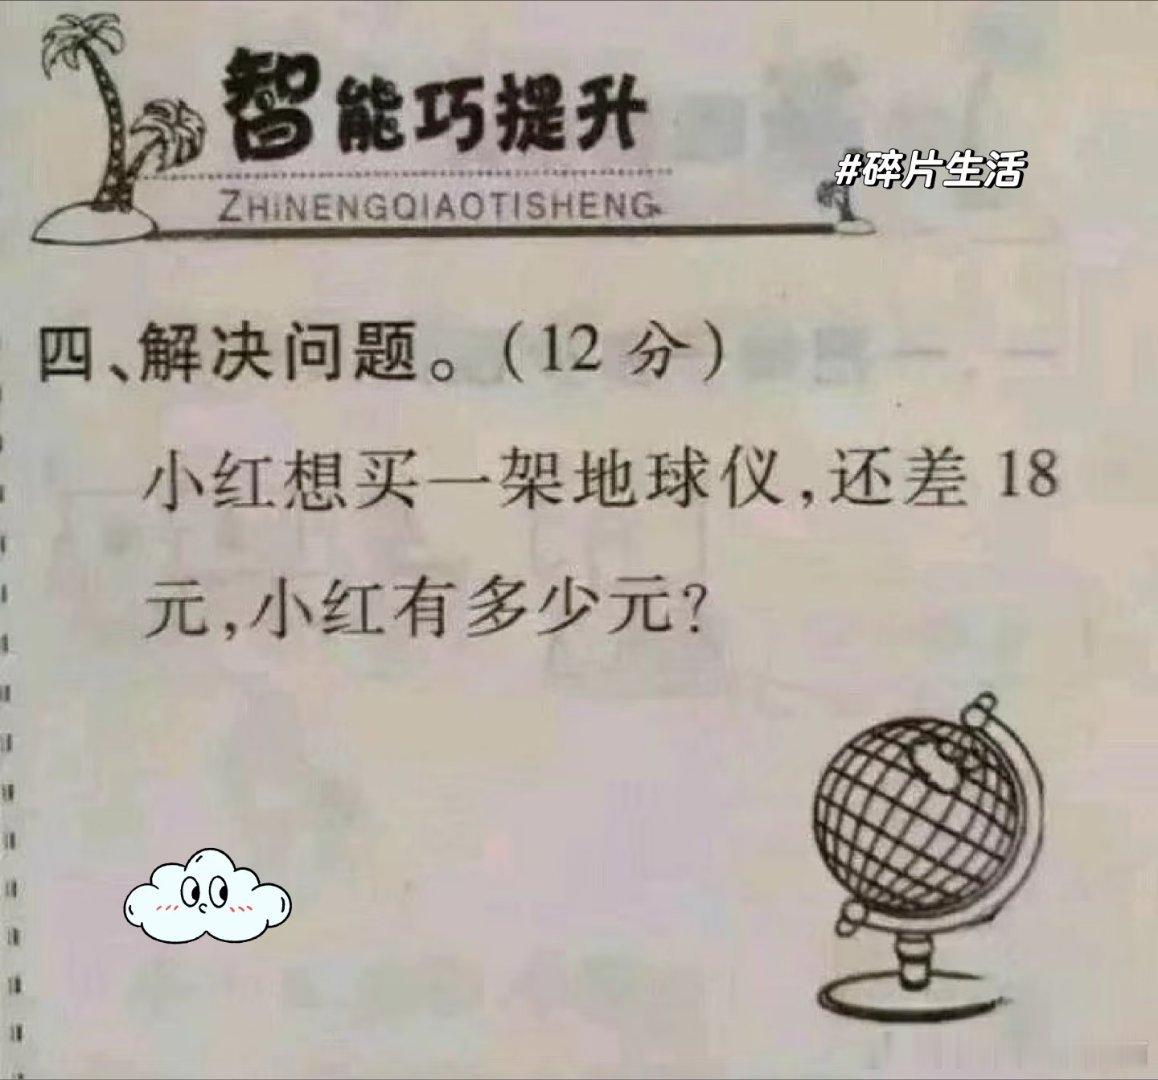 智能巧提升
#碎片生活
ZHINENGQIAOTISHENG
四、解决问题。(12分)
小红想买一架地球仪,还差18
元,小红有多少元?